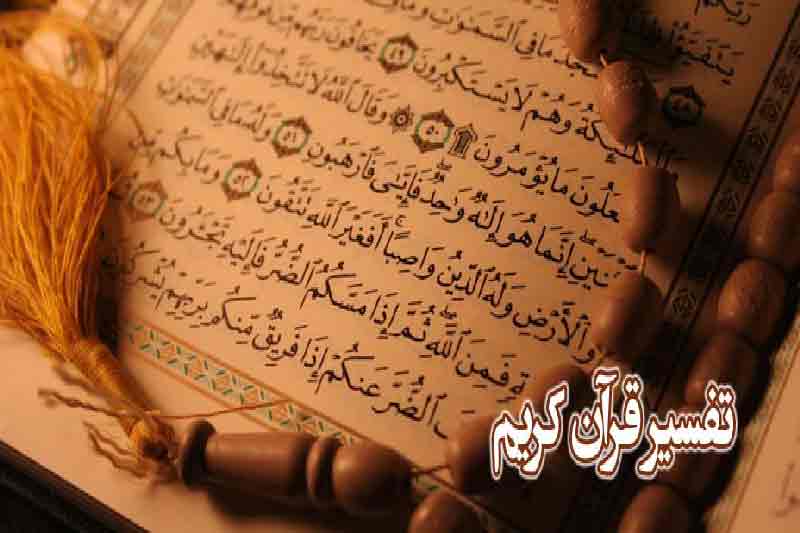 سْجُدُ مَا فِي ٱلسَّمَٰوَٰتِ وَمَا
ٱلْمَلَٰٓئِكَةُ وَهُمْ لَا يَسْتَكْبِرُونَ ٤٩ يَخَافُونَ رَبَّهُم مِّن فَوْقِهِمْ
عَلُونَ مَا يُؤْمَرُونَ ۩ ٥٠ ۞ وَقَالَ ٱللَّهُ لَا تَتَّخِذُوٓا۟ إِلَٰهَيْنِ
نَيْنِ إِنَّمَا هُوَ إِلَٰهٌ وَٰحِدٌ فَإِيَّٰىَ فَٱرْهَبُونِ ٥١ وَلَهُۥ مَا فِي ٱلسَّمَٰوَٰتِ
وَٱلْأَرْضِ وَلَهُ ٱلدِّينُ وَاصِبًا أَفَغَيْرَ ٱللَّهِ تَتَّقُونَ ٥٢ وَمَا بِكُم مِّن
ةٍ فَمِنَ ٱللَّهِ ثُمَّ إِذَا مَسَّكُمُ ٱلضُّرُّ فَإِلَيْهِ تَجْـَٔرُونَ ٥٣
ٱلضُّرَّ عَنكُمْ إِذَا فَرِيقٌ مِّنكُم بِرَبِّهِمْ يُشْرِكُونَ
تفسیر قرآن کریم